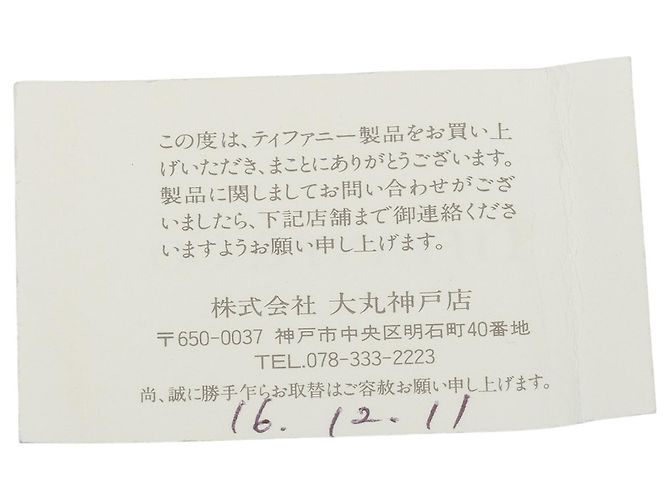 この度は、ティファニー製品をお買い上
げいただき、まことにありがとうございます。
製品に関しましてお問い合わせがござ
いましたら、下記店舗まで御連絡くださ
いますようお願い申し上げます。
株式会社 大丸神戸店
〒650-0037 神戸市中央区明石町40番地
TEL.078-333-2223
尚、誠に勝手乍らお取替はご容赦お願い申し上げます。
16. 12. 11